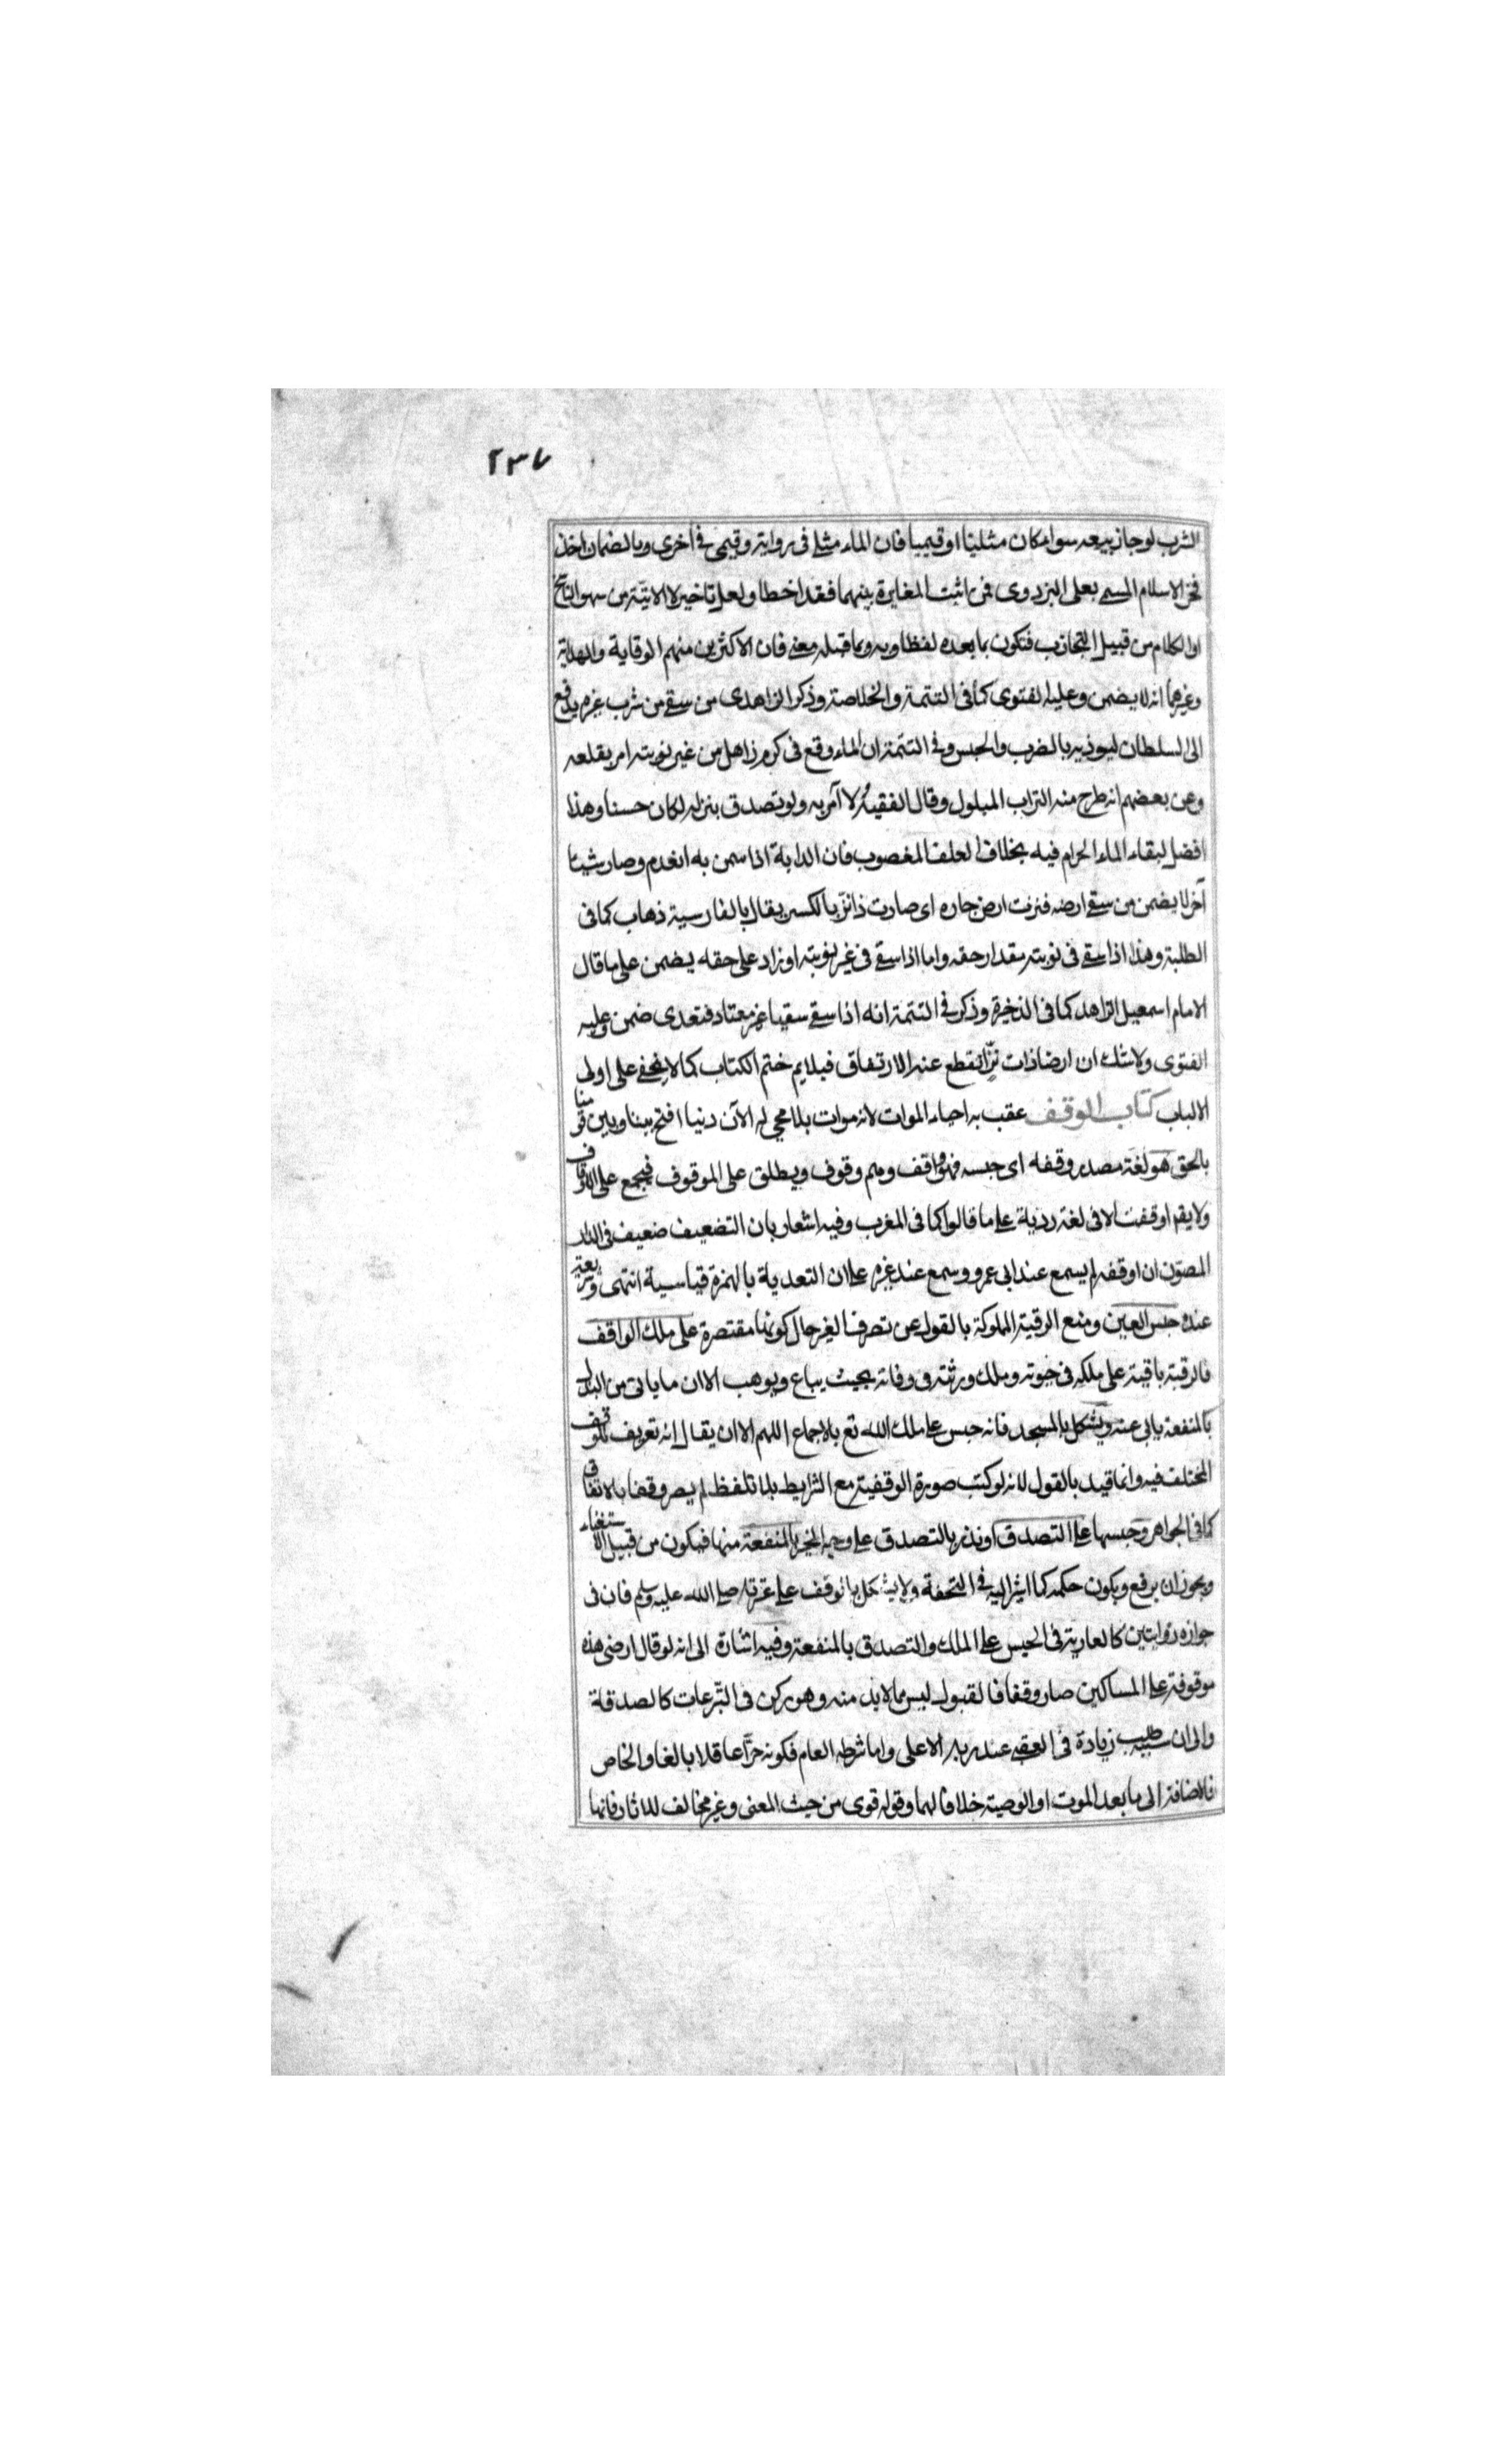 ٢٣٧
الشرب لو جاز بيعه سواء كان مثليا او قيميا فان الماء مثلى فى رواية وقيمى فى اخرى وبالضمان اخذ
فخر الاسلام المسمى بعلى البزدوى فمن اثبت المغايرة بينهما فقد اخطا ولعل تاخير لا الاتية من سهو الناسخ
او الكلام من قبيل التجاذب فتكون بما بعده لفظا وبه وبما قبله معنى فان الاكثرين منهم الوقاية والهداية
وغيرهما انه لا يضمن وعليه الفتوى كما فى التتمة والخلاصة وذكر الزاهدى من سقى من شرب غيره يدفع
الى السلطان ليوذيه بالضرب والحبس وفى التتمة ان الماء وقع فى كرم زاهل من غير نوبته امر بقلعه
وعن بعضهم انه طرح منه التراب المبلول وقال الفقيه لا آمر به ولو تصدق بنزله لكان حسنا وهذا
افضل لبقاء الماء الحرام فيه بخلاف العلف المغصوب فان الدابة اذا سمن به انعدم وصار شيئا
آخر لا يضمن من سقى ارضه فنزت ارض جاره اى صارت ذا نز بالكسر يقال بالفارسية ذهاب كما فى
الطلبة وهذا اذا سقى فى نوبته مقدار حقه واما اذا سقى فى غير نوبته او زاد على حقه يضمن على ما قال
الامام اسمعيل الزاهد كما فى الذخيرة وذكر فى التتمة انه اذا سقى سقيا غير معتاد فتعدى ضمن وعليه
الفتوى ولا شك ان ارضا ذات نز انقطع عنه الارتفاق فيلايم ختم الكتاب كما لا يخفى على اولى
الالباب كتاب الوقف عقب به احياء الموات لانه موات بلا محيى له الآن ربنا افتح بيننا وبين قومنا
بالحق هو لغة مصدر وقفه اى حبسه فهو واقف وهم وقوف ويطلق على الموقوف فيجمع على الاوقاف
ولا يقم اوقفت الا فى لغة ردية على ما قالوا كما فى المغرب وفيه اشعار بان التضعيف ضعيف فى الدر
المصون ان اوقفه لم يسمع عند ابى عمرو وسمع عند غيره على ان التعدية بالهمزة قياسية انتهى وشريعة
عنده حبس العين ومنع الرقبة المملوكة بالقول عن تصرف الغير حال كونها مقتصرة على ملك الواقف
فالرقبة باقية على ملكه فى حيوته وملك ورثته فى وفاته بحيث يباع ويوهب الا ان ما ياتى من
بالمنفعة يابى عنه ويشكل بالمسجد فانه حبس على ملك الله تع بالاجماع اللهم الا ان يقال انه تعريف للوقف
المختلف فيه وانما قيد بالقول لانه لو كتب صورة الوقفية مع الشرايط بلا تلفظ لم يصر وقفا بالاتفاق
كما فى الجواهر وحبسها على التصدق او نذر بالتصدق على وجه الخير بالمنفعة منها فيكون من قبيل الاستغناء
ويجوز ان يرفع ويكون حكمه كما اشير اليه فى التحفة ولا يشكل بما توقف على عترته صلى الله عليه وسلم فان فى
جوازه روايتين كالعارية فى الحبس على الملك والتصدق بالمنفعة وفيه اشارة الى انه لو قال ارضى هذه
موقوفة على المساكين صار وقفا فالقبول ليس مما لا بد منه وهو ركن فى التبرعات كالصدقة
والى ان سببه طلب زيادة فى العقبى عند ربه الاعلى واما شرطه العام فكونه حرا عاقلا بالغا والخاص
فالاضافة الى ما بعد الموت او الوصية خلافا لهما وقوله قوى من حيث المعنى وغير مخالف للاثار فانها